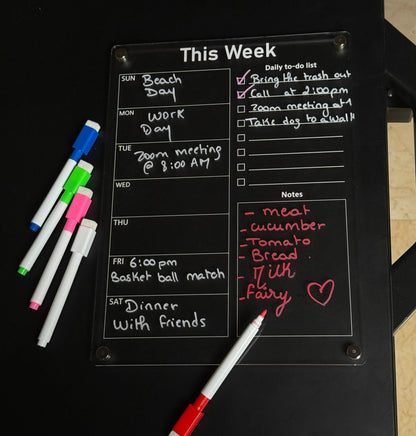 This Week
SUN Beach
Day
MON Work
Day
TUE Zoom meeting
@ 8:00 AM
WED
THU
FRI 6:00 pm
Basket ball match
SAT Dinner
With friends
Daily to-do list
Bring the trash out
Call at 2:00pm
Zoom meeting at
Take dog to a walk
Notes
- meat
-cucumber
-Tomato
- Bread.
- Milk
-Fairy